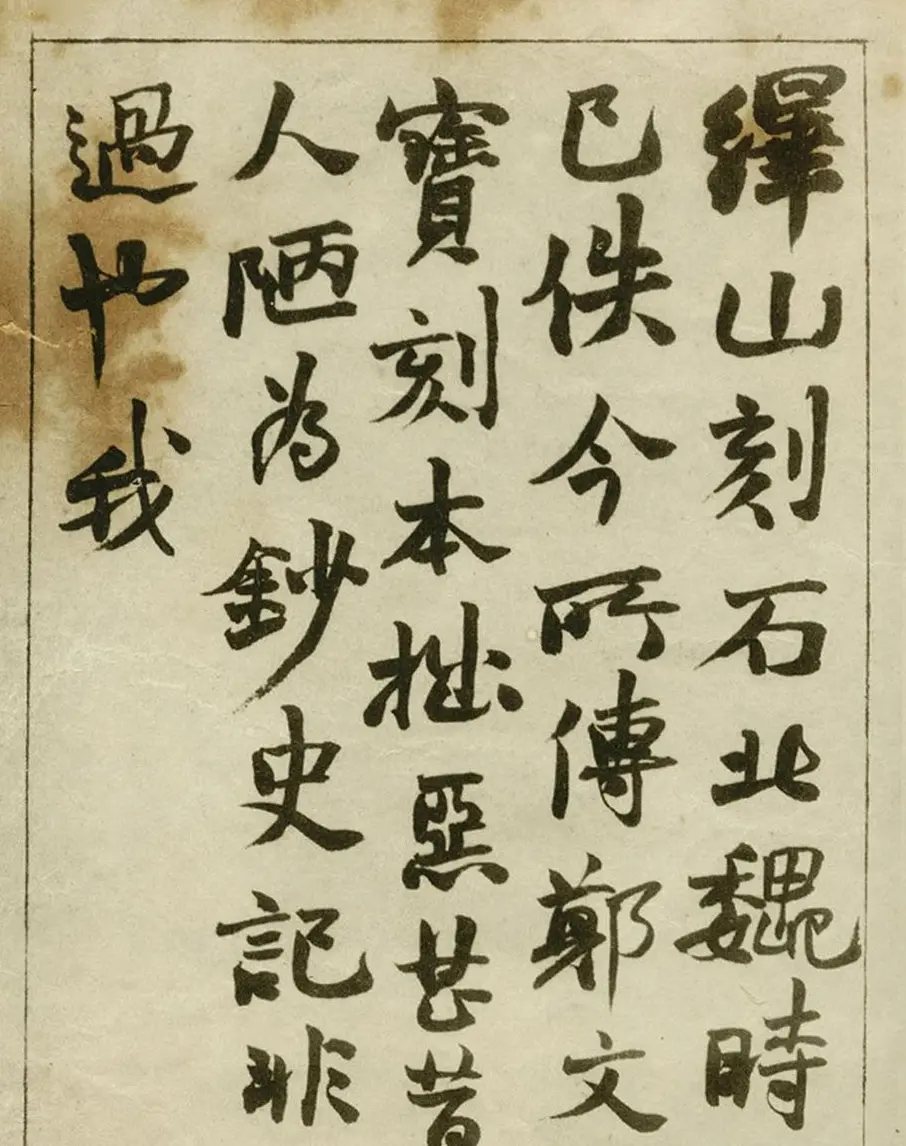 繹山刻石北魏時
已佚今所傳鄭文
寳刻本拙惡甚昔
人陋為鈔史記非
過也我